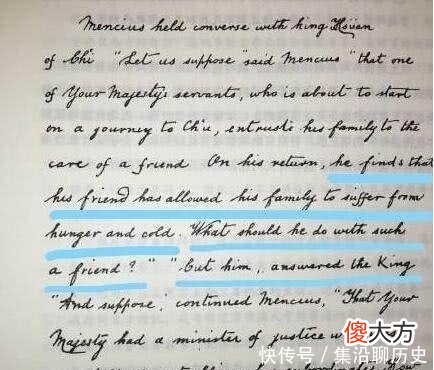 Mencius held converse with king Hsüan
of Chi "Let us suppose" said Mencius "that one
of Your Majesty's servants, who is about to start
on a journey to Ch'u, entrusts his family to the
care of a friend On his return, he finds that
his friend has allowed his family to suffer from
hunger and cold. What should he do with such
a friend?" "Cut him", answered the King
"And suppose," continued Mencius, "That Your
Majesty had a minister of justice
傻大方
快传号 / 集沿聊历史